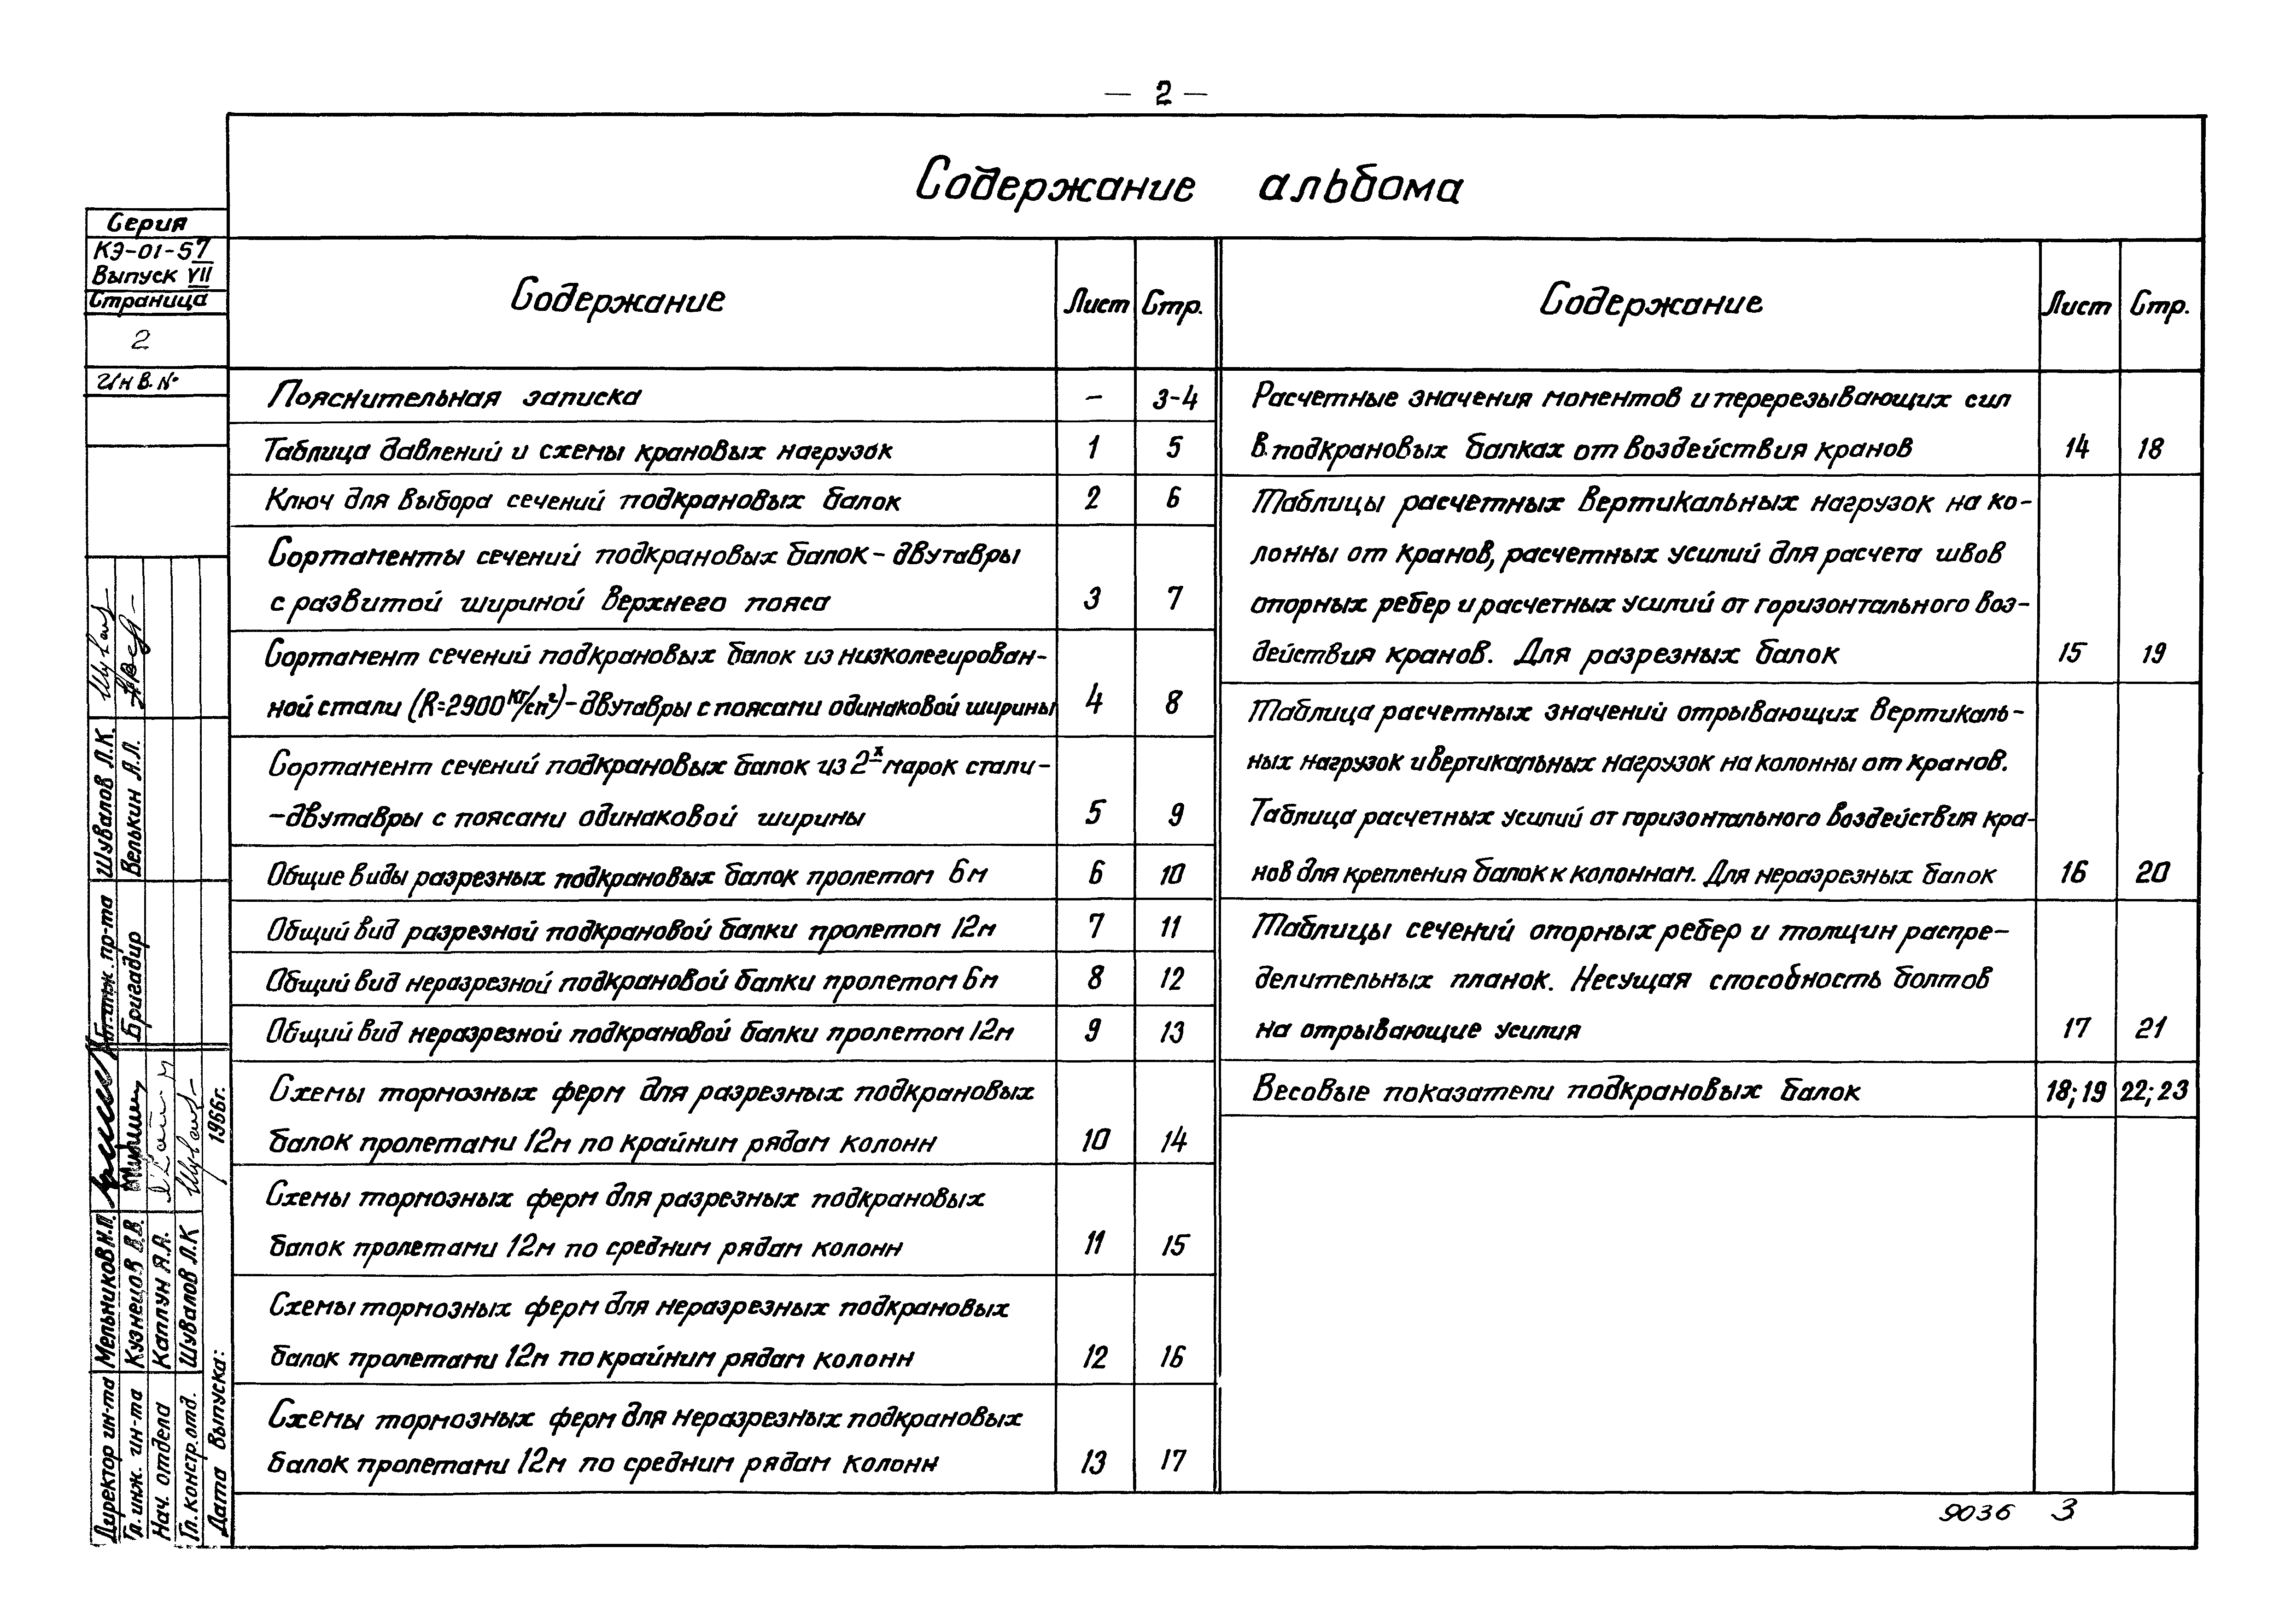 — 2 —
Содержание альбома
Серия
КЭ-01-57
Выпуск VII
Страница
2
Инв. №
Содержание Лист Стр.
Пояснительная записка – 3-4
Таблица давлений и схемы крановых нагрузок 1 5
Ключ для выбора сечений подкрановых балок 2 6
Сортаменты сечений подкрановых балок - двутавры
с развитой шириной верхнего пояса 3 7
Сортамент сечений подкрановых балок из низколегирован-
ной стали (R=2900 кг/см²) - двутавры с поясами одинаковой ширины 4 8
Сортамент сечений подкрановых балок из 2х марок стали -
- двутавры с поясами одинаковой ширины 5 9
Общие виды разрезных подкрановых балок пролетом 6м 6 10
Общий вид разрезной подкрановой балки пролетом 12м 7 11
Общий вид неразрезной подкрановой балки пролетом 6м 8 12
Общий вид неразрезной подкрановой балки пролетом 12м 9 13
Схемы тормозных ферм для разрезных подкрановых
балок пролетами 12м по крайним рядам колонн 10 14
Схемы тормозных ферм для разрезных подкрановых
балок пролетами 12м по средним рядам колонн 11 15
Схемы тормозных ферм для неразрезных подкрановых
балок пролетами 12м по крайним рядам колонн 12 16
Схемы тормозных ферм для неразрезных подкрановых
балок пролетами 12м по средним рядам колонн 13 17
Содержание Лист Стр.
Расчетные значения моментов и перерезывающих сил
в подкрановых балках от воздействия кранов 14 18
Таблицы расчетных вертикальных нагрузок на ко-
лонны от кранов, расчетных усилий для расчета швов
опорных ребер и расчетных усилий от горизонтального воз-
действия кранов. Для разрезных балок 15 19
Таблица расчетных значений отрывающих вертикаль-
ных нагрузок и вертикальных нагрузок на колонны от кранов.
Таблица расчетных усилий от горизонтального воздействия кра-
нов для крепления балок к колоннам. Для неразрезных балок 16 20
Таблицы сечений опорных ребер и толщин распре-
делительных планок. Несущая способность болтов
на отрывающие усилия 17 21
Весовые показатели подкрановых балок 18; 19 22; 23
9036 3
Гл. инж. пр-та Шувалов Л.К.
Бригадир Велькин Л.Л.
Директор ин-та Мельников Н.П.
Гл. инж. ин-та Кузнецов В.В.
Нач. отдела Каплун Я.А.
Гл. констр. отд. Шувалов Л.К
Дата выпуска: 1966г.